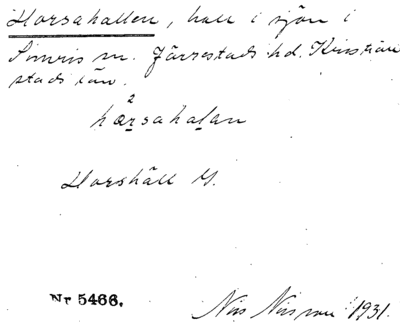 Horsahallen, hall i sjön i
Simris sn. Järrestads hd. Kristian
stads län.
2
hærsahalan
Horshäll G.
Nr 5466. Nils Nilsson 1931.